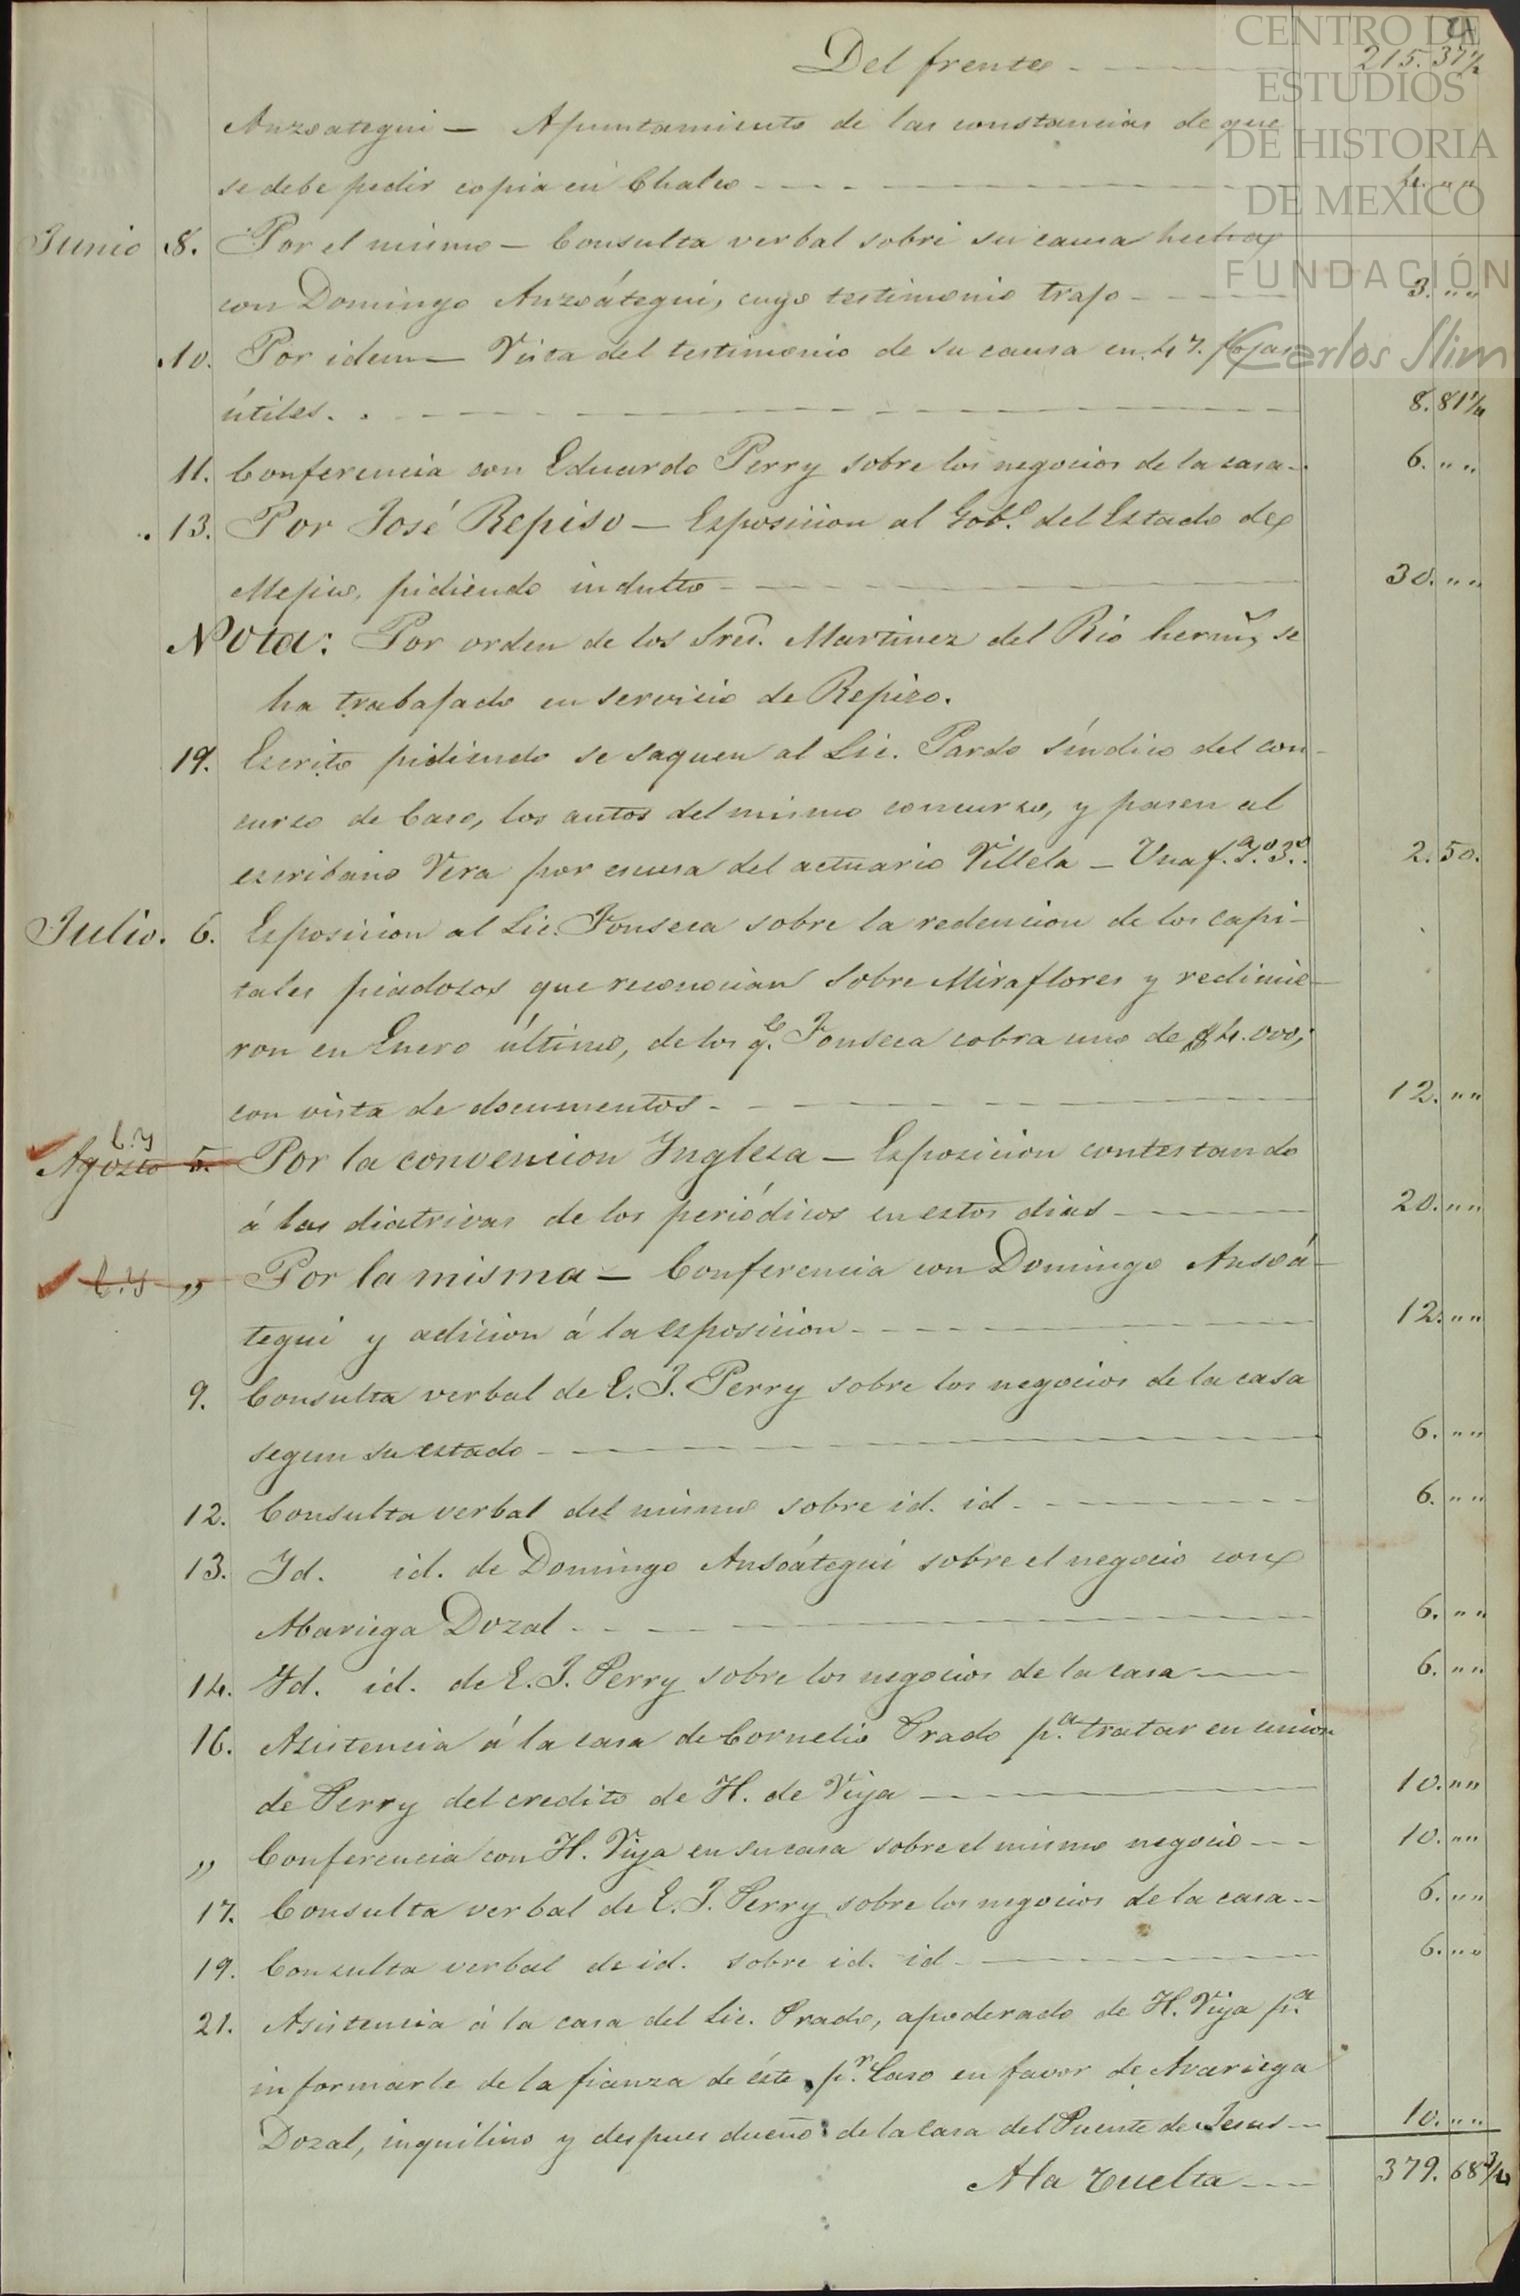 CENTRO DE
ESTUDIOS
DE HISTORIA
DE MEXICO
FUNDACIÓN
Carlos Slim
Del frente 215. 37 1/2
Anzoategui — Apuntamiento de las constancias de que
se debe pedir copia en Chalco 4. ""
Junio 8. Por el mismo — Consulta verbal sobre su causa hecha
con Domingo Anzoátegui, cuyo testimonio trajo 3. ""
10. Por idem — Vista del testimonio de su causa en 47. fojas
útiles. 8. 81 1/4
11. Conferencia con Eduardo Perry sobre los negocios de la casa 6. ""
13. Por José Repiso — Esposicion al Gob.o del Estado de
Mejico, pidiendo indulto 30. ""
Nota: Por orden de los Sres. Martinez del Rio herms, se
ha trabajado en servicio de Repiso.
19. Escrito pidiendo se saquen al Lic. Pardo síndico del con-
curso de Caso, los autos del mismo concurso, y pasen al
escribano Vera por escusa del actuario Villela — Una f.a J.o 3.o 2. 50.
Julio. 6. Esposicion al Lic. Fonseca sobre la redencion de los capi-
tales piadosos que reconocian sobre Miraflores y redimie-
ron en Enero último, de los q.e Fonseca cobra uno de $4.000,
con vista de documentos 12. ""
C. Y
Agosto 5. Por la convencion Inglesa — Esposicion contestando
á las diatrivas de los periódicos en estos dias 20. ""
C. Y " Por la misma — Conferencia con Domingo Ansoá-
tegui y adicion á la esposicion 12. ""
9. Consulta verbal de E. J. Perry sobre los negocios de la casa
segun su estado 6. ""
12. Consulta verbal del mismo sobre id. id 6. ""
13. Id. id. de Domingo Ansoátegui sobre el negocio con
Abariega Dozal 6. ""
14. Id. id. de E. J. Perry sobre los negocios de la casa 6. ""
16. Asistencia á la casa de Cornelio Prado p.a tratar en union
de Perry del credito de H. de Viya 10. ""
" Conferencia con H. Viya en su casa sobre el mismo negocio 10. ""
17. Consulta verbal de E. J. Perry sobre los negocios de la casa 6. ""
19. Consulta verbal de id. sobre id. id 6. ""
21. Asistencia á la casa del Lic. Prado, apoderado de H. Viya p.a
informarle de la fianza de éste p.r Caso en favor de Avariega
Dozal, inquilino y despues dueño de la casa del Puente de Jesus 10. ""
A la vuelta 379. 68 3/4